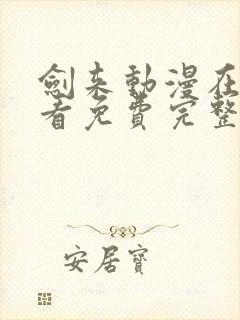 劍来動漫在
看免費完整
安居寶